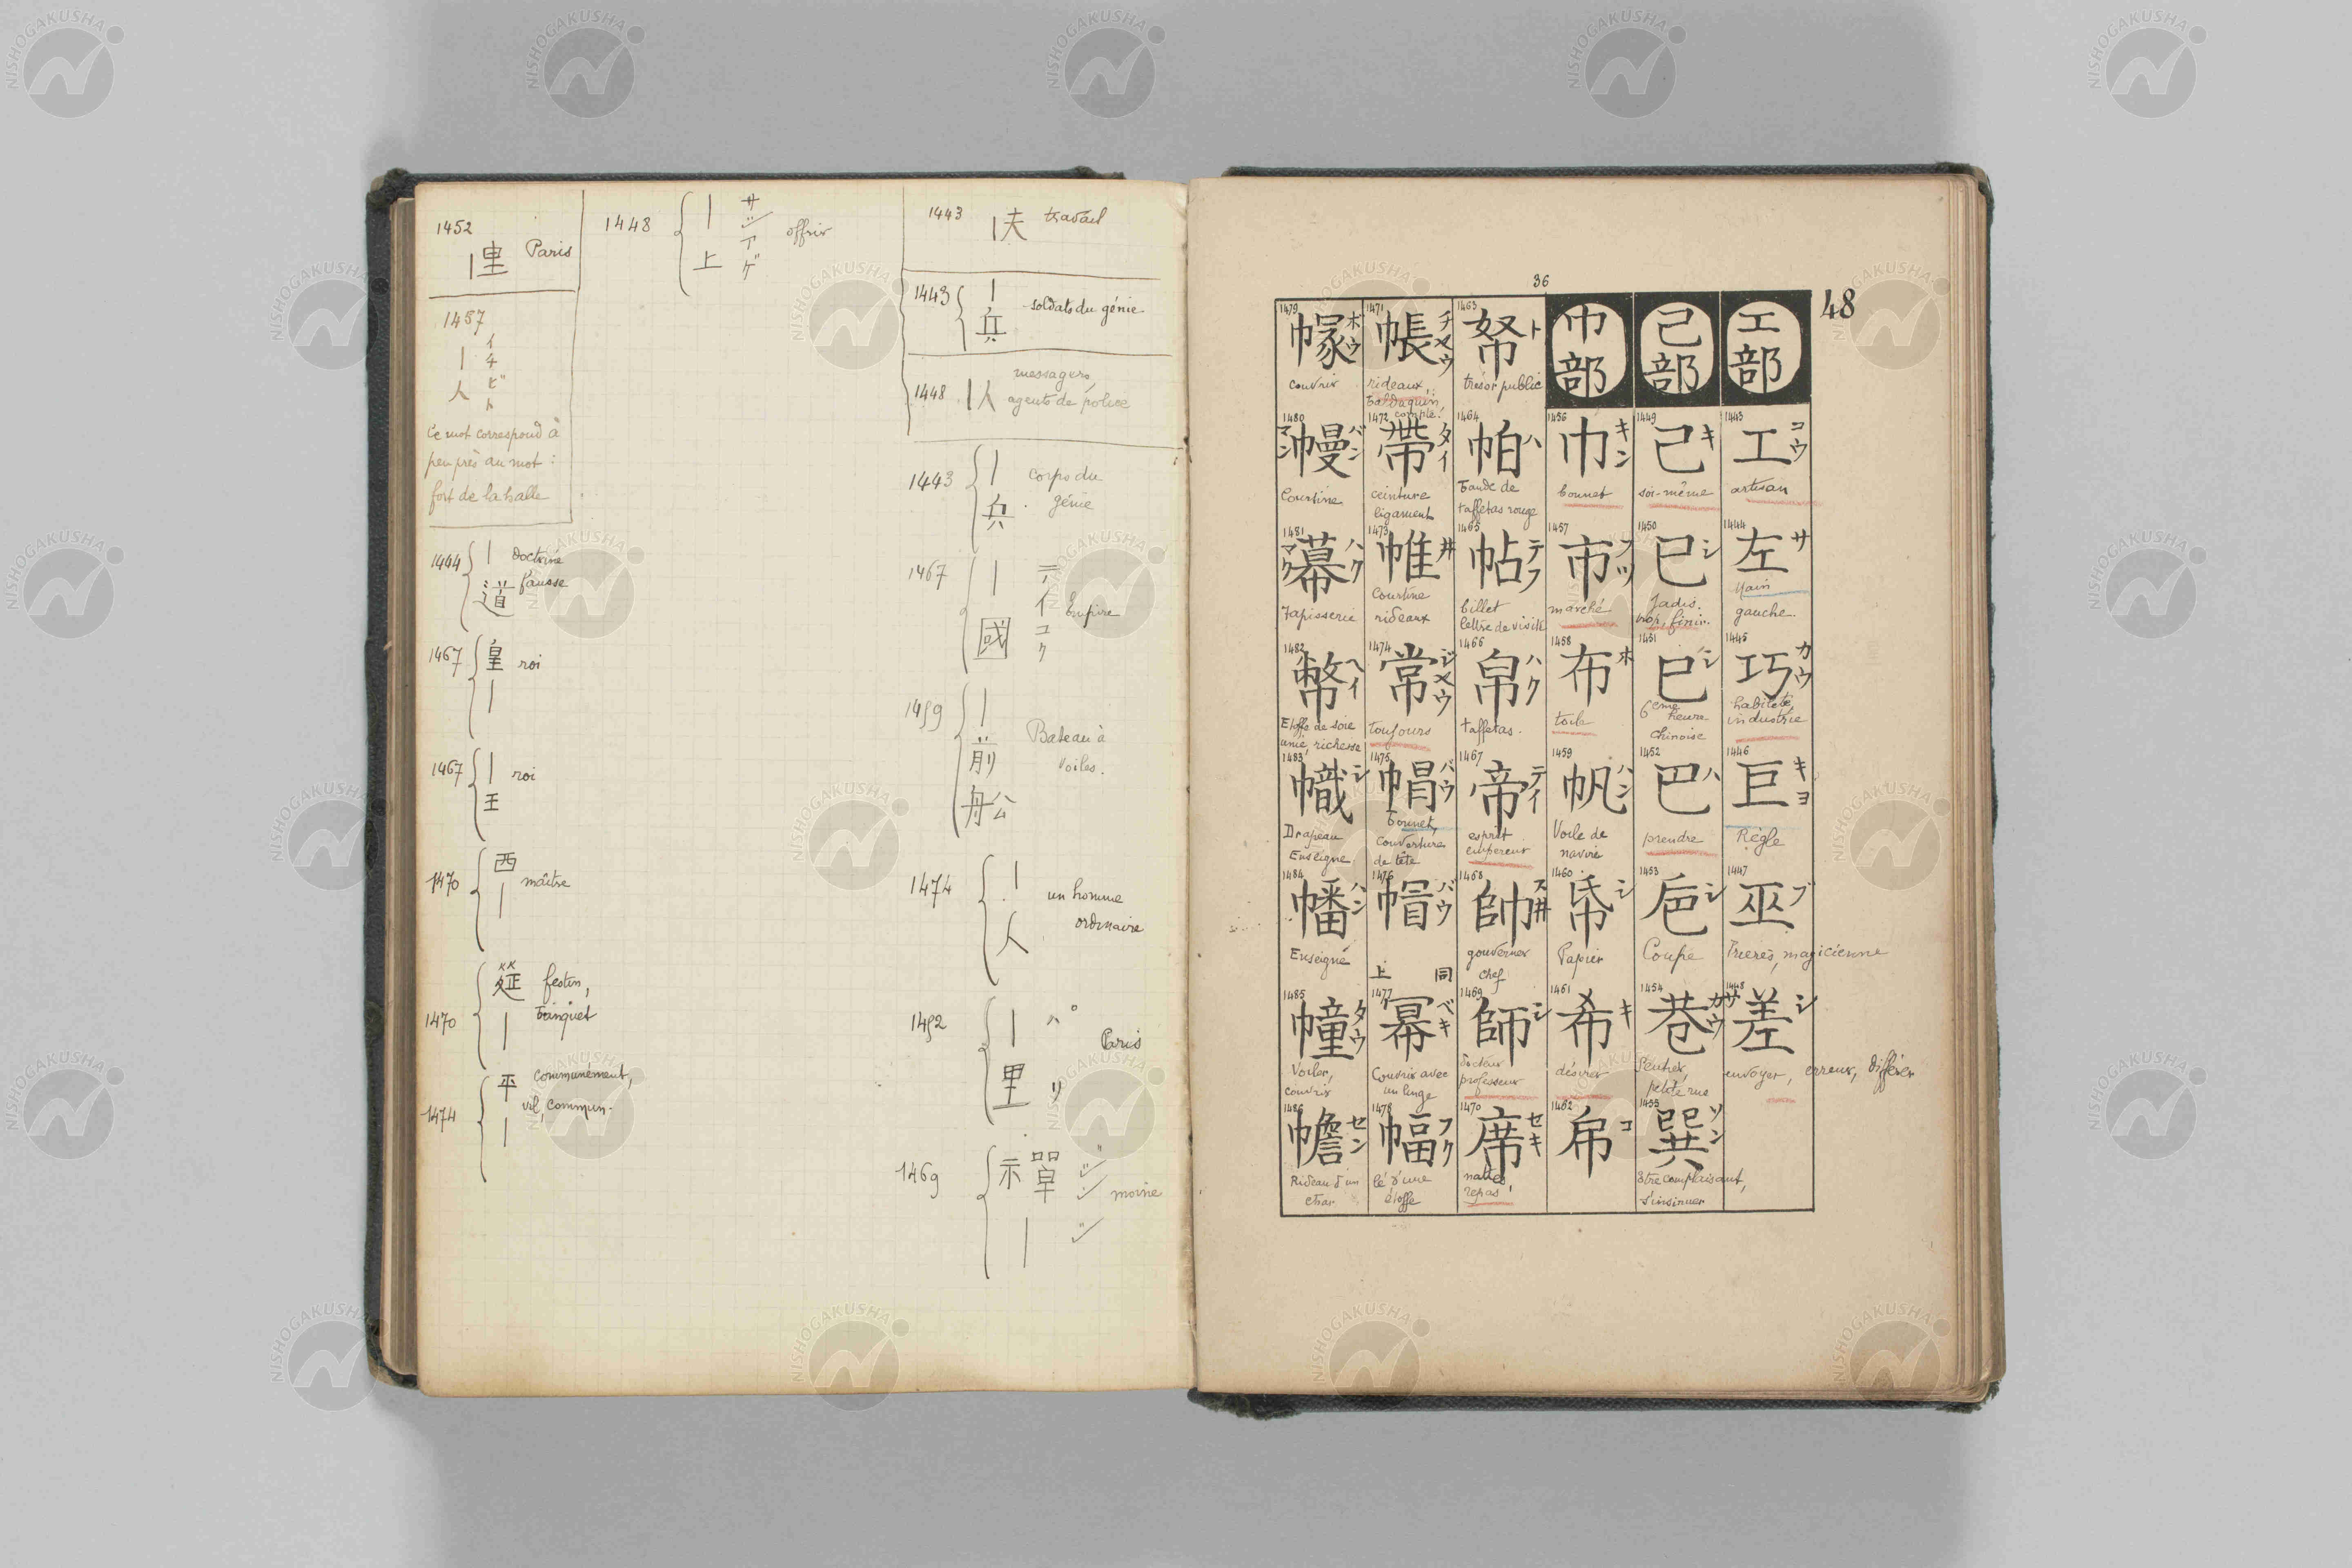 1452
｜俥 Paris
1457
｜人 イチビト
Ce mot correspond à
peu près au mot :
fort de la halle
1444 ｜道 Doctrine
fausse
1467 皇｜ roi
1467 ｜王 roi
1470 西｜ maître
1470 筵｜ festin,
banquet
1474 平｜ communément,
vil, commun.
1448 ｜上 サシアゲ offrir
1443 ｜夫 travail
1443 ｜兵 soldats du génie
1448 ｜人 messagers,
agents de police
1443 ｜兵 corps du
génie
1467 ｜國 テイコク Empire
1459 ｜前船 Bateau à
voiles.
1474 ｜人 un homme
ordinaire
1452 ｜里 パリ Paris
1469 禪｜ moine
36
48
工部
1443 工 コウ
artisan
1444 左 サ
Main
gauche.
1445 巧 カウ
habileté,
industrie
1446 巨 キヨ
Règle
1447 巫 ブ
magicienne
1448 差 シ サ
envoyer, erreur, différer
己部
1449 己 キ
soi-même
1450 已 シ
Jadis.
trop, finir.
1451 巳 シ
6eme heure
Chinoise
1452 巴 ハ
prendre
1453 巵 シ
Coupe
1454 巷 カウ
Sentier,
petite rue
1455 巽 ソン
être complaisant,
s'insinuer
巾部
1456 巾 キン
bonnet
1457 市 フツ
marché
1458 布 ホ
toile
1459 帆 ハン
Voile de
navire
1460 帋 シ
Papier
1461 希 キ
désirer
1462 帍 コ
1463 帑 ト
trésor public
1464 帕 ハ
Bande de
taffetas rouge
1465 帖 テフ
billet
lettre de visite
1466 帛 ハク
taffetas.
1467 帝 テイ
esprit
empereur
1468 帥 スヰ
gouverner
chef
1469 師 シ
docteur
professeur
1470 席 セキ
nattes,
repas,
1471 帳 チヤウ
rideaux,
baldaquin
compte.
1472 帶 タイ
ceinture
ligament
1473 帷 ヰ
Courtine
rideaux
1474 常 ジヤウ
toujours
1475 帽 バウ
bonnet,
couverture
de tête
1476 帽 バウ
同上
1477 冪 ベキ
Couvrir avec
un linge
1478 幅 フク
lé d'une
étoffe
1479 幏 ボウ
couvrir
1480 幔 バン マン
Courtine
1481 幕 バク マク
Tapisserie
1482 幣 ヘイ
Etoffe de soie
unie, richesse
1483 幟 シ
Drapeau
Enseigne
1484 幡 ハン
Enseigne
1485 幢 タウ
Voiler,
couvrir
1486 幨 セン
Rideau d'un
char